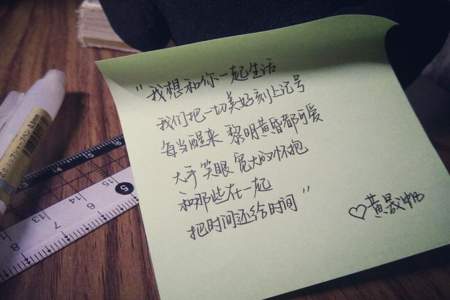 "我想和你一起生活
我们把一切美好刻上记号
每当醒来 黎明黄昏都可爱
大手 笑眼 宽大的怀抱
和那些在一起
把时间还给时间"
♡黄
5
13
14
15